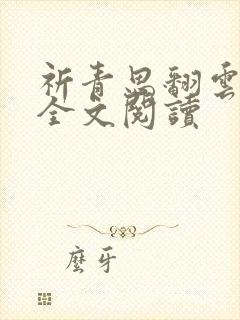 祈青思翻雲
全文閱讀
麼牙